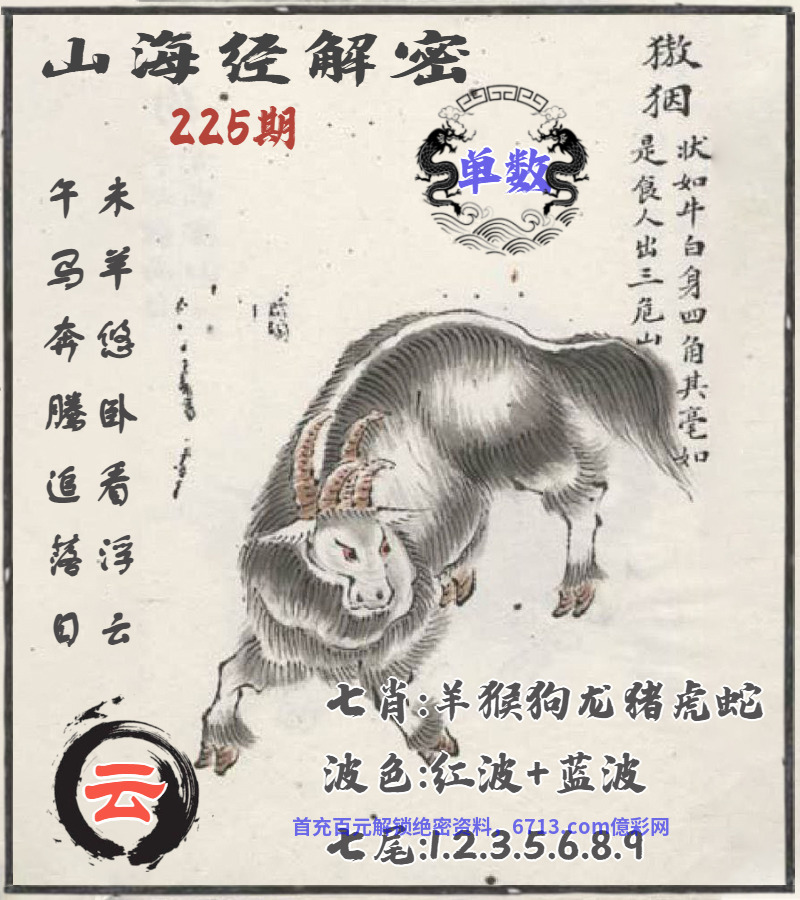 山海经解密
225期
单数
獓𤝱
状如牛白身四角其毫如
是食人出三危山
未羊悠卧看浮云
午马奔腾追落日
云
七肖:羊猴狗龙猪虎蛇
波色:红波+蓝波
首充百元解锁绝密资料，6713.com億彩网
七尾:1.2.3.5.6.8.9